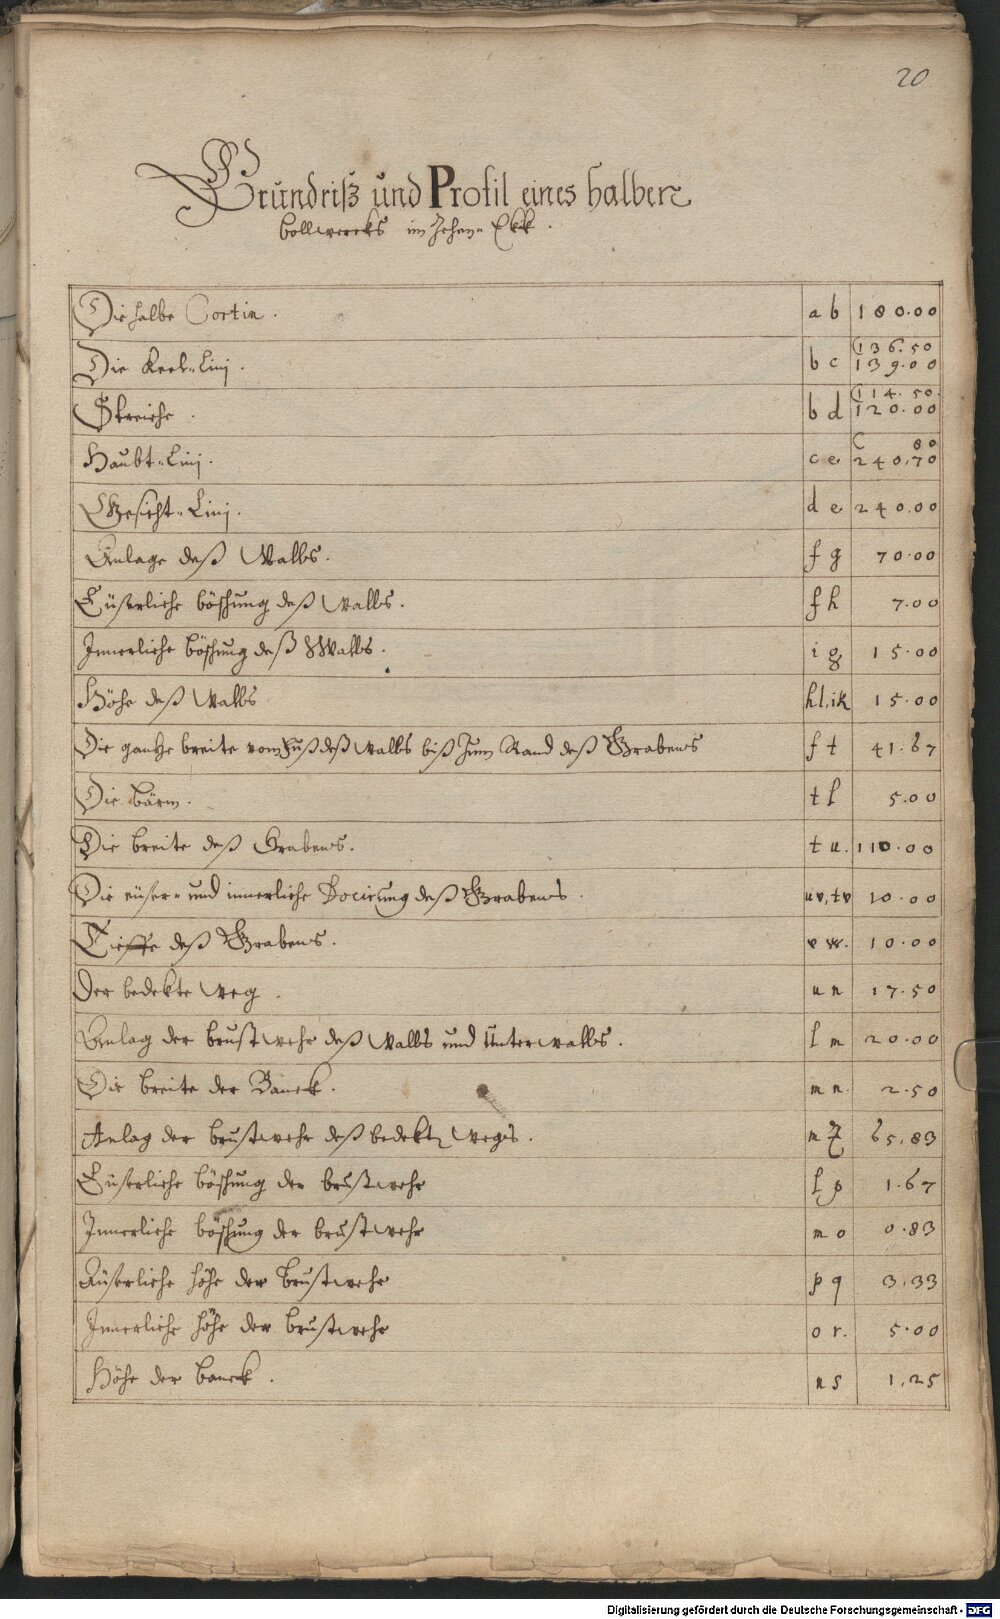 20
Grundriß und Profil eines halben
bollwercks im Zehen-Ekk.
Die halbe Cortin. ab 180.00
Die Keel-Linj. bc (136.50 139.00
Streiche. bd (114.50. 120.00
Haubt-Linj. ce ( 80 240.70
Gesicht-Linj. de 240.00
Anlage deß Walls. fg 70.00
Eüserliche böschung deß Walls. fh 7.00
Innerliche böschung deß Walls. ig 15.00
Höhe deß Walls hl,ik 15.00
Die gantze breite vom Fuß deß Walls biß zum Rand deß Grabens ft 41.67
Die Bärm. tl 5.00
Die breite deß Grabens. tu. 110.00
Die eüser- und innerliche Docirung deß Grabens. uv,tv 10.00
Tieffe deß Grabens. vw. 10.00
Der bedekte Weg. un 17.50
Anlag der brustwehr deß Walls und Unterwalls. lm 20.00
Die breite der Banck. mn. 2.50
Anlag der brustwehr deß bedektn Wegs. mZ 65.83
Eüserliche böschung der brustwehr lp 1.67
Innerliche böschung der brustwehr mo 0.83
Aüserliche höhe der brustwehr pq 3.33
Innerliche höhe der brustwehr or. 5.00
Höhe der banck. ns 1.25
Digitalisierung gefördert durch die Deutsche Forschungsgemeinschaft - DFG